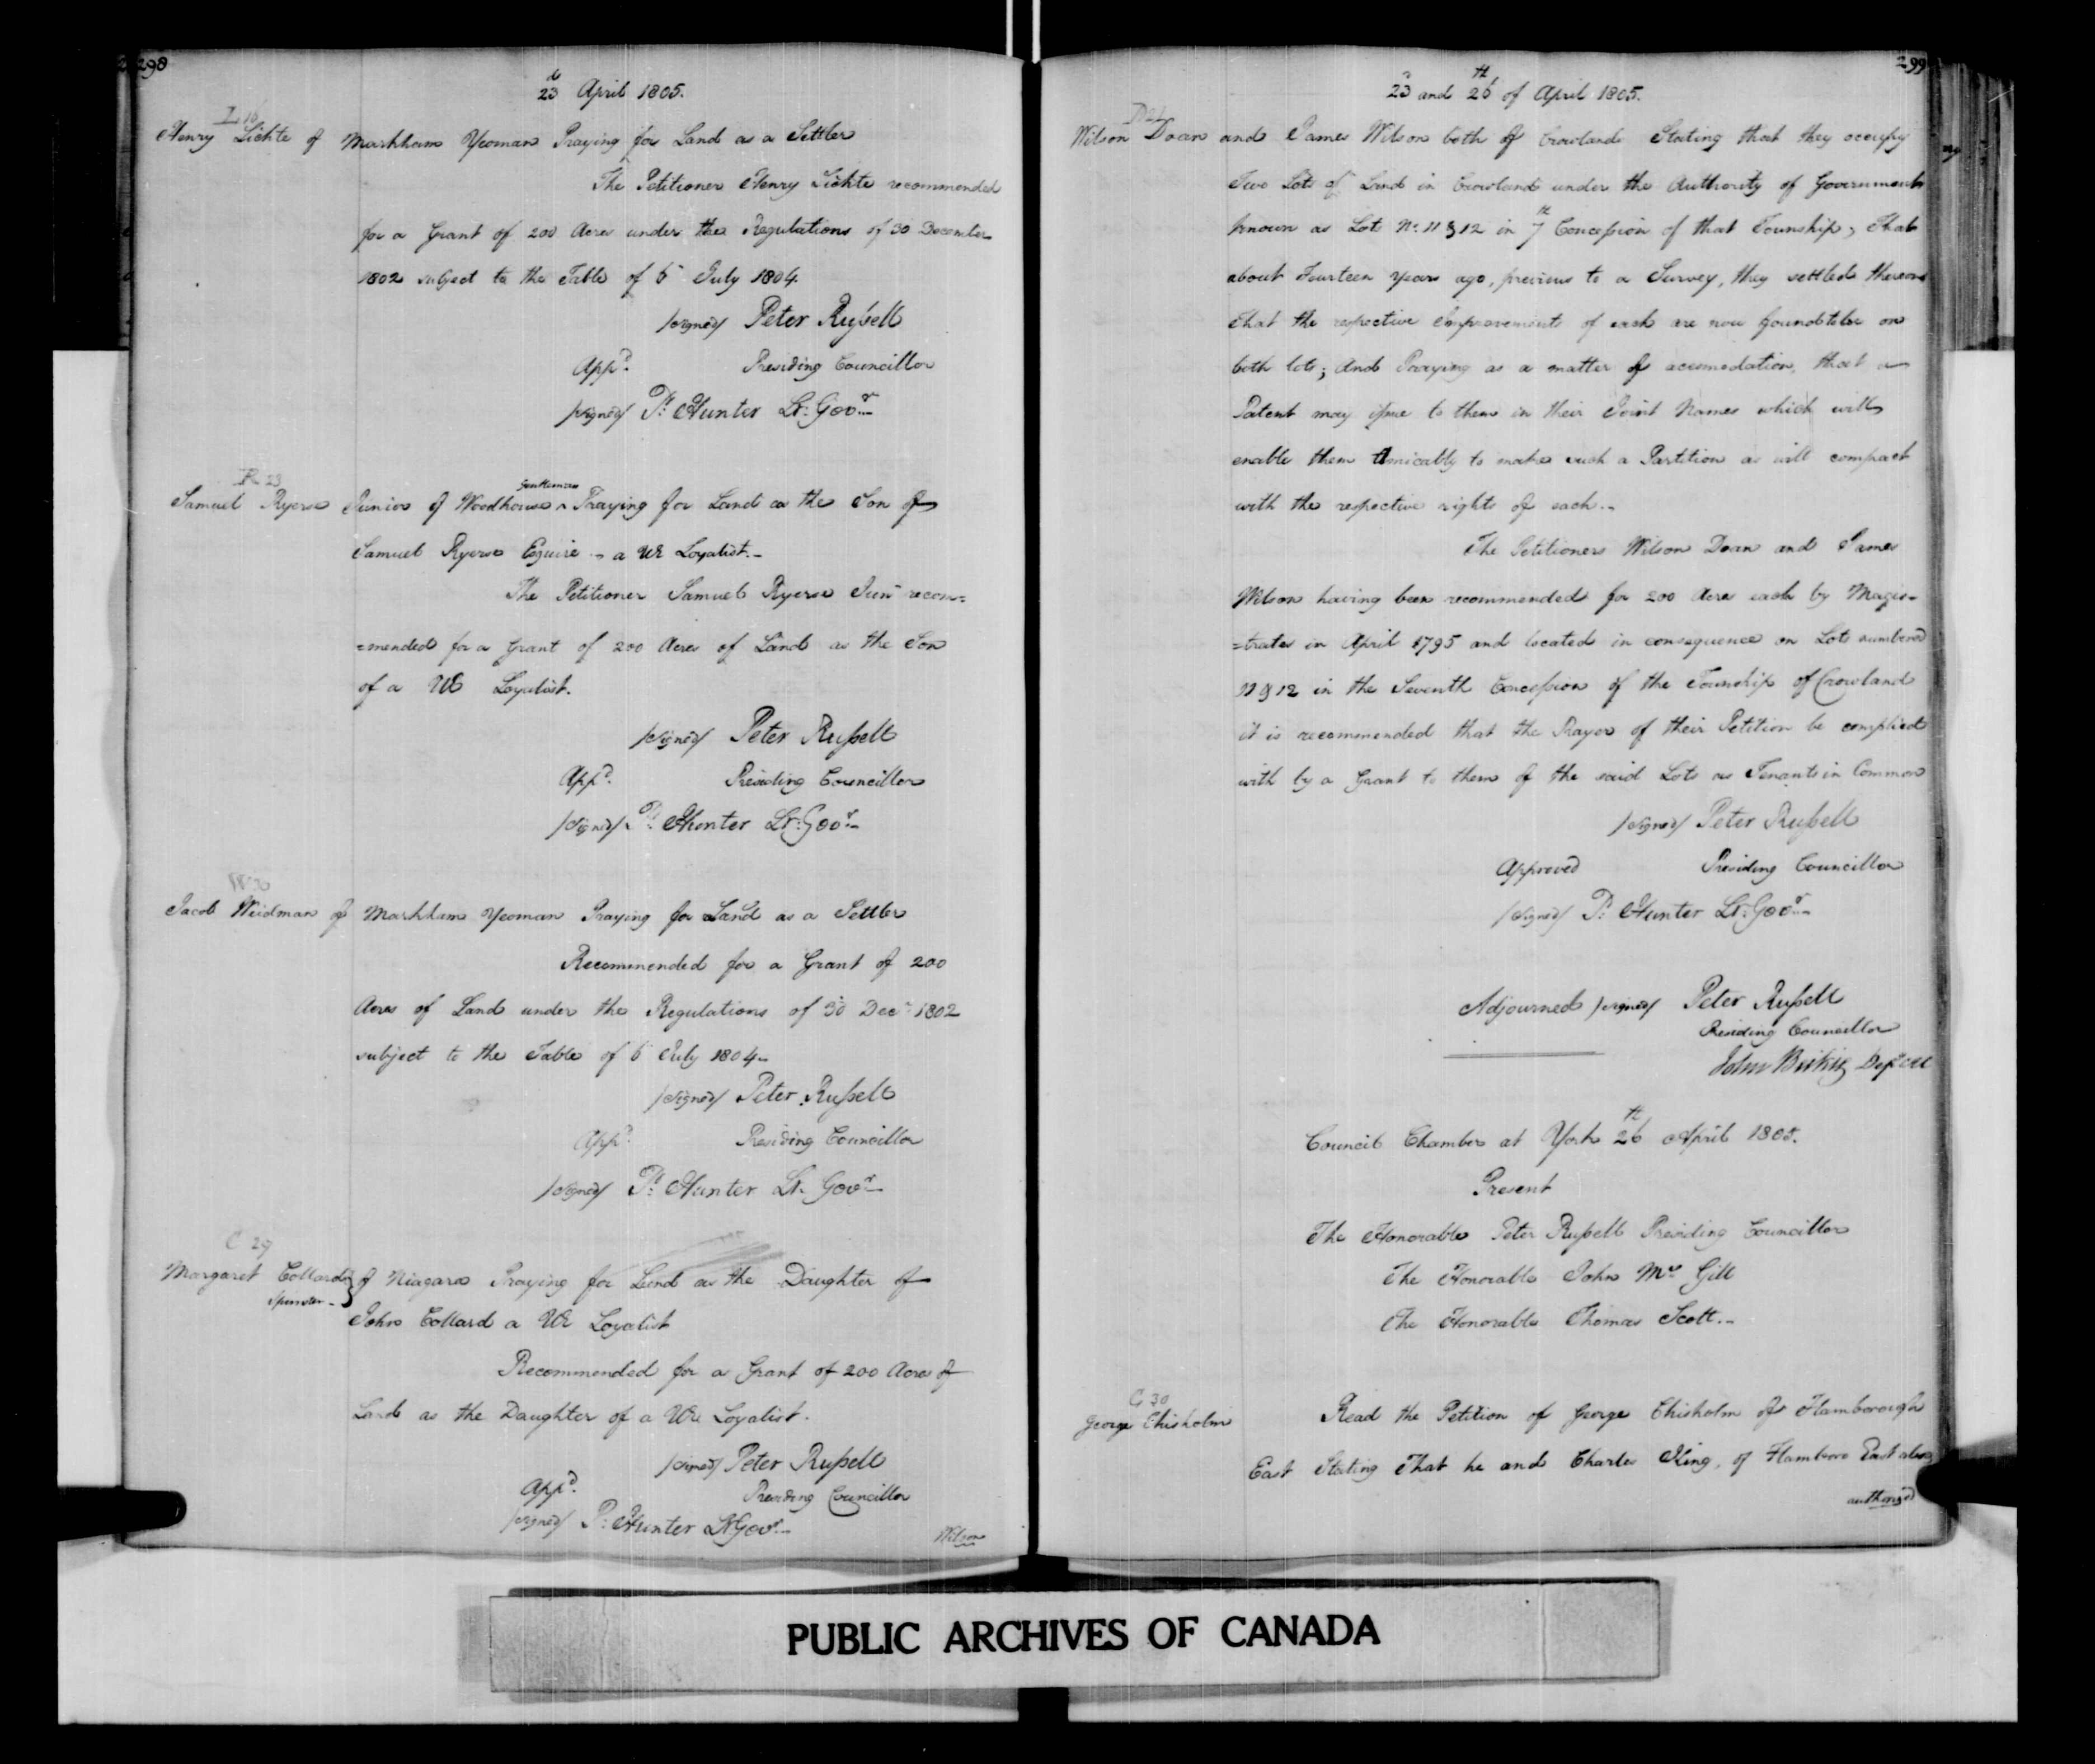 298
23d April 1805.
L 16
Henry Lichte of Markham Yeoman Praying for Land as a Settler
The Petitioner Henry Lichte recommended
for a Grant of 200 Acres under the Regulations of 30 December
1802 subject to the Table of 6 July 1804.
/signed/ Peter Russell
Appd. Presiding Councillor
/signed/ P: Hunter Lt: Govr.
R 23
Samuel Ryerse Junior of Woodhouse Gentleman Praying for Land as the Son of
Samuel Ryerse Esquire - a UE Loyalist.-
The Petitioner Samuel Ryerse Junr recom=
=mended for a Grant of 200 Acres of Land as the Son
of a UE Loyalist.
/signed/ Peter Russell
Appd. Presiding Councillor
/signed/ P: Hunter Lt: Govr.
Jacob Weidman of Markham Yeoman Praying for Land as a Settler
Recommended for a Grant of 200
Acres of Land under the Regulations of 30 Decr 1802
subject to the Table of 6 July 1804-
/signed/ Peter Russell
Appd. Presiding Councillor
/signed/ P: Hunter Lt. Govr.
C 29
Margaret Collard of Niagara Praying for Land as the Daughter of
Spinster-
John Collard a UE Loyalist
Recommended for a Grant of 200 Acres of
Land as the Daughter of a UE Loyalist.
/signed/ Peter Russell
Appd. Presiding Councillor
/signed/ P: Hunter Lt Govr.
Wilson
299
23d and 26th of April 1805.
Wilson Doan and James Wilson both of Crowland Stating that they occupy
Two Lots of Land in Crowland under the Authority of Government
known as Lots No. 11 & 12 in 7th Concession of that Township, That
about Fourteen years ago, previous to a Survey, they settled thereon
that the respective Improvements of each are now found to be on
both lots; And Praying as a matter of accomodation, that a
Patent may issue to them in their Joint Names which will
enable them Amicably to make such a Partition as will compact
with the respective rights of each.-
The Petitioners Wilson Doan and James
Wilson having been recommended for 200 Acres each by Magis=
=trates in April 1795 and located in consequence on Lots numbered
11 & 12 in the Seventh Concession of the Township of Crowland
it is recommended that the Prayer of their Petition be complied
with by a Grant to them of the said Lots as Tenants in Common
/signed/ Peter Russell
Approved Presiding Councillor
/signed/ P: Hunter Lt: Govr.
Adjourned /signed/ Peter Russell
Presiding Councillor
John Beikie
Council Chamber at York 26th April 1805.
Present
The Honorable Peter Russell Presiding Councillor
The Honorable John Mc Gill
The Honorable Thomas Scott.-
C 30
George Chisholm Read the Petition of George Chisholm of Flamborough
East Stating That he and Charles King, of Flamboro East also
authorized
PUBLIC ARCHIVES OF CANADA